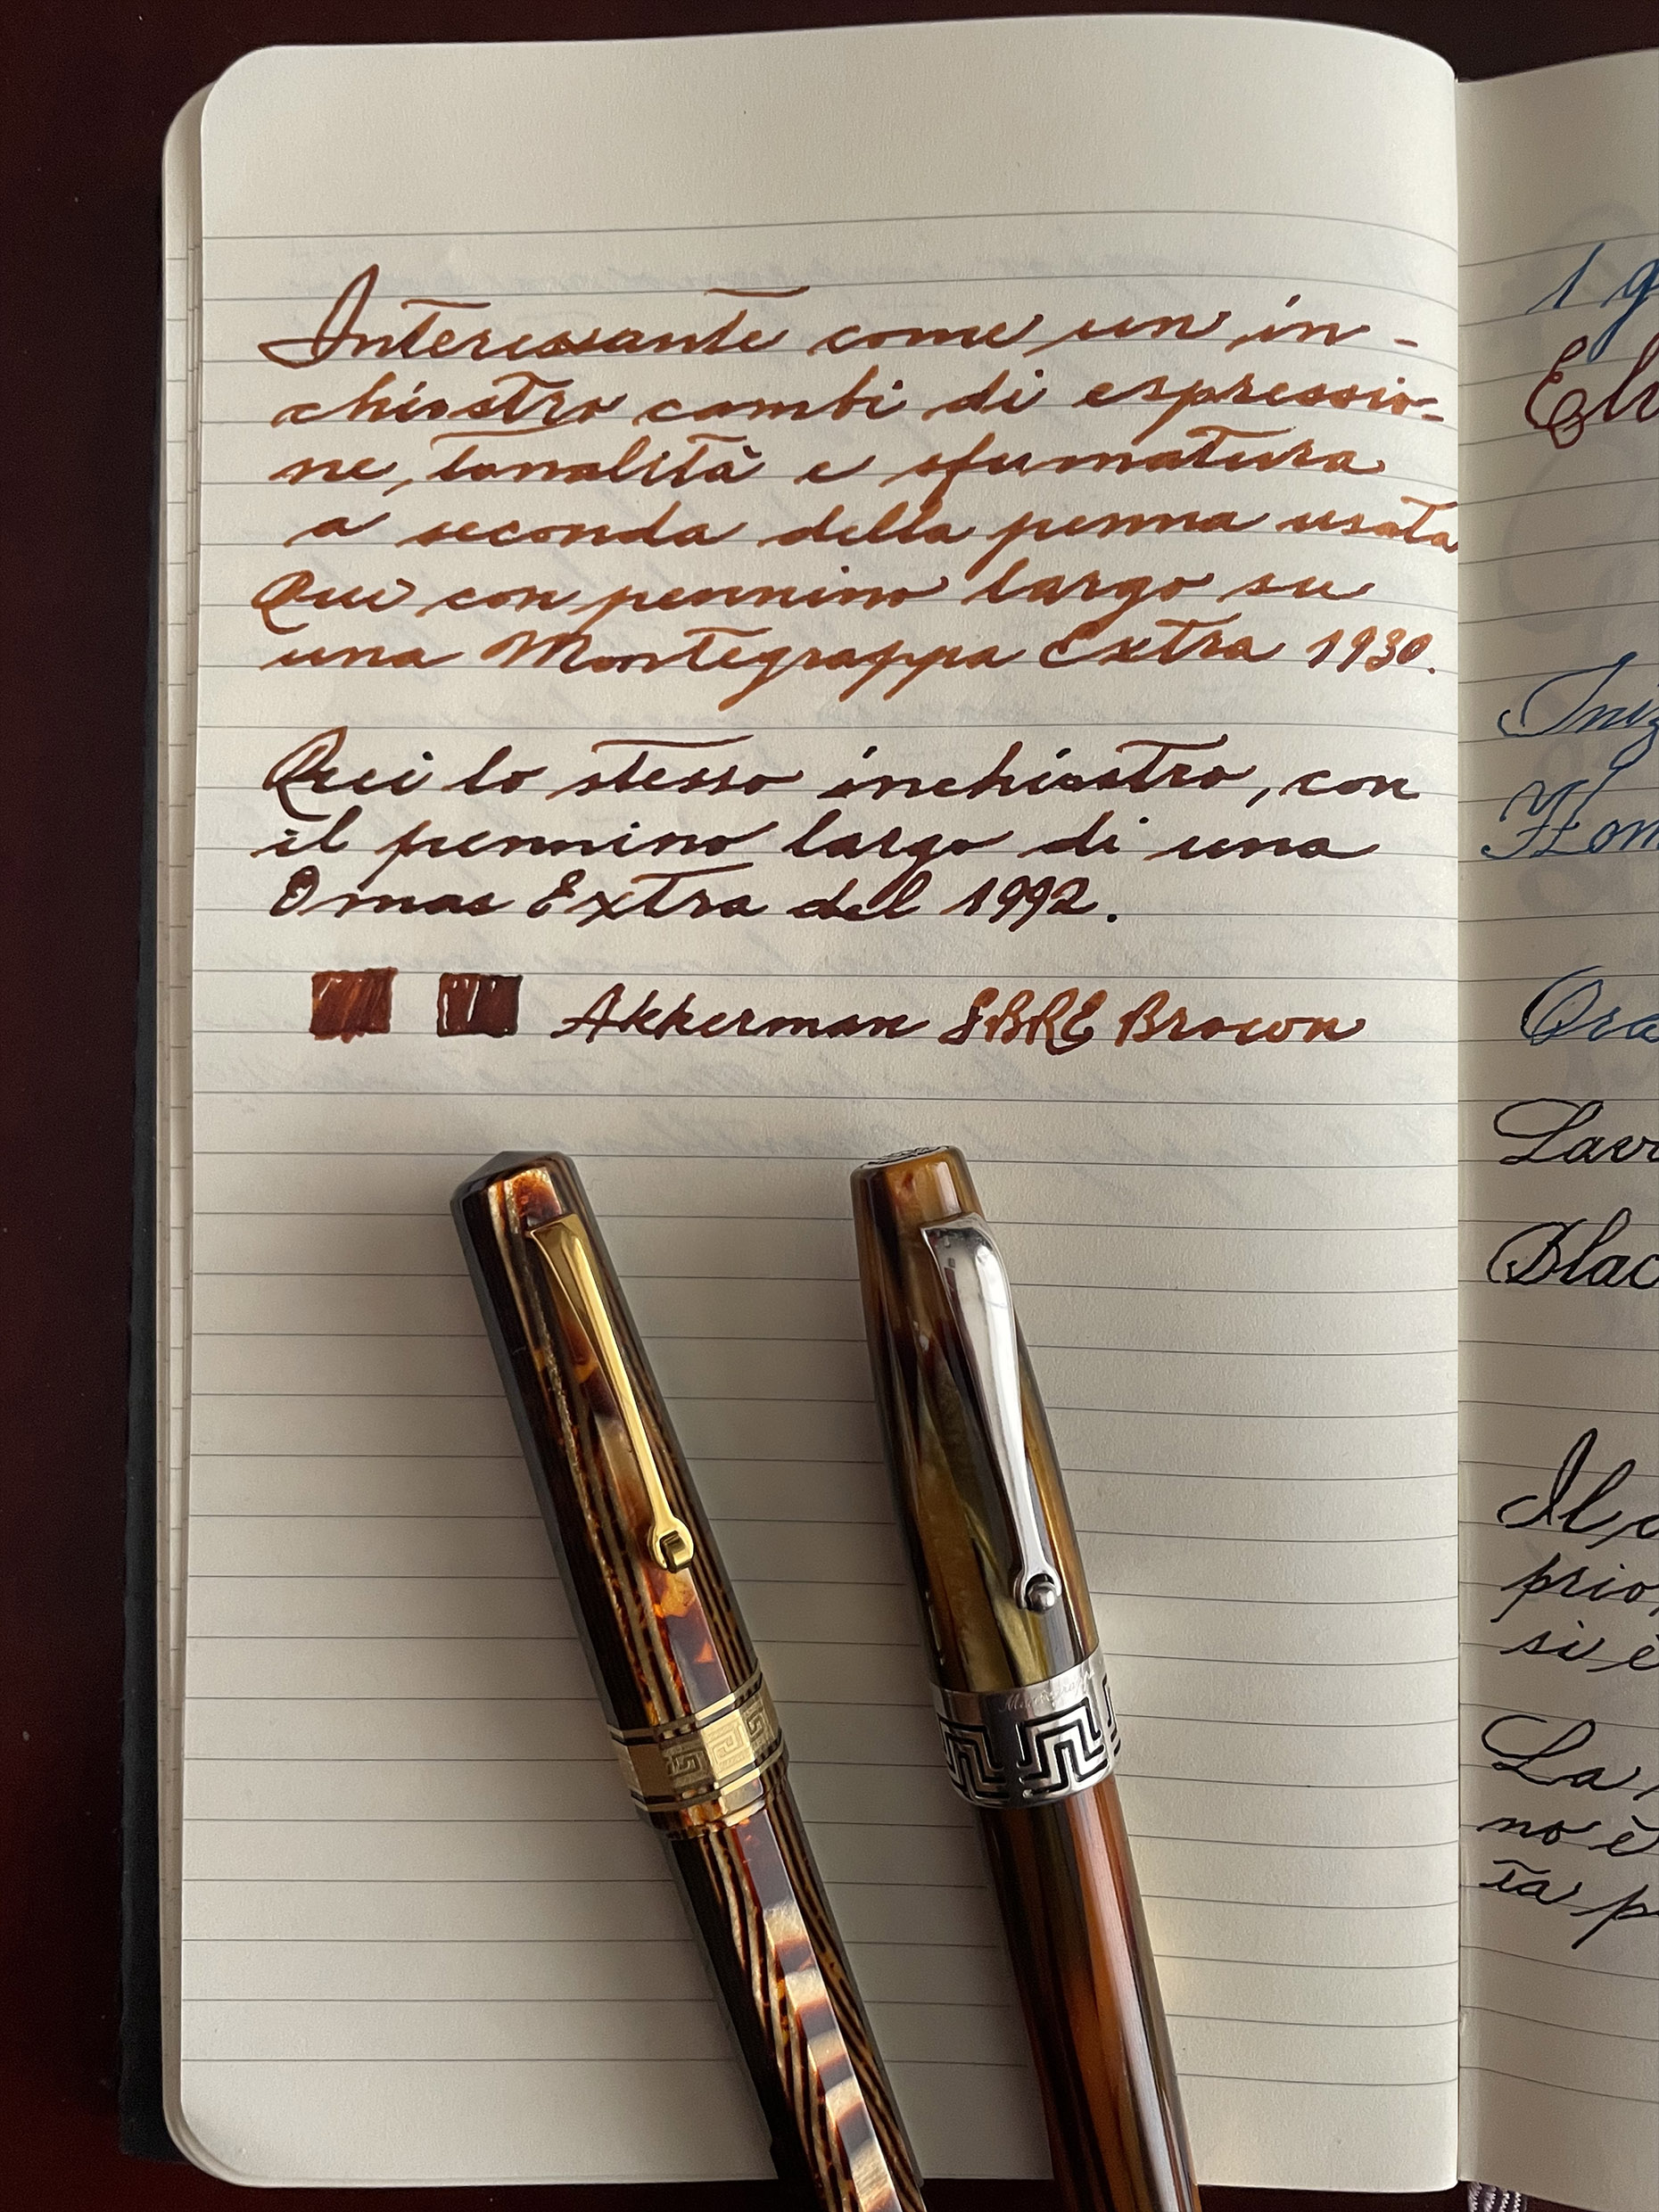 Interessante come un in-
chiostro cambi di espressio-
ne, tonalità e sfumatura
a seconda della penna usata
Qui con pennino largo su
una Montegrappa Extra 1930.
Qui lo stesso inchiostro, con
il pennino largo di una
Omas Extra del 1992.
Akkerman SBRE Brown
1 g
Iniz
Ora
Blac
Il
prio
si è
La
no è
ta p